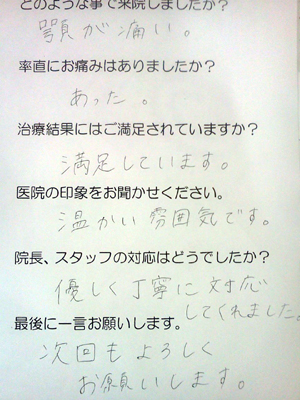 どのような事で来院しましたか?
顎が痛い。
率直にお痛みはありましたか?
あった。
治療結果にはご満足されていますか?
満足しています。
医院の印象をお聞かせください。
温かい雰囲気です。
院長、スタッフの対応はどうでしたか?
優しく丁寧に対応
してくれました。
最後に一言お願いします。
次回もよろしく
お願いします。